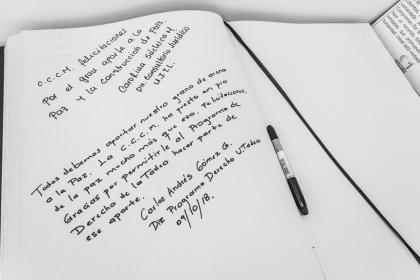 C.C.C.M. felicitaciones
por el gran aporte a la
Paz y la construcción de País.
Carolina M.
Dir. Consultorio Jurídico
UJTL.
Todos debemos aportar nuestro grano de arena
a la Paz. La C.C.C.M. ha puesto en pro
de la paz mucho más que eso. Felicitaciones,
Gracias por permitirle al Programa de
Derecho de la Tadeo hacer parte de
ese aporte.
Carlos Andrés Gómez G.
Dir Programa Derecho U.Tadeo
09/10/18.